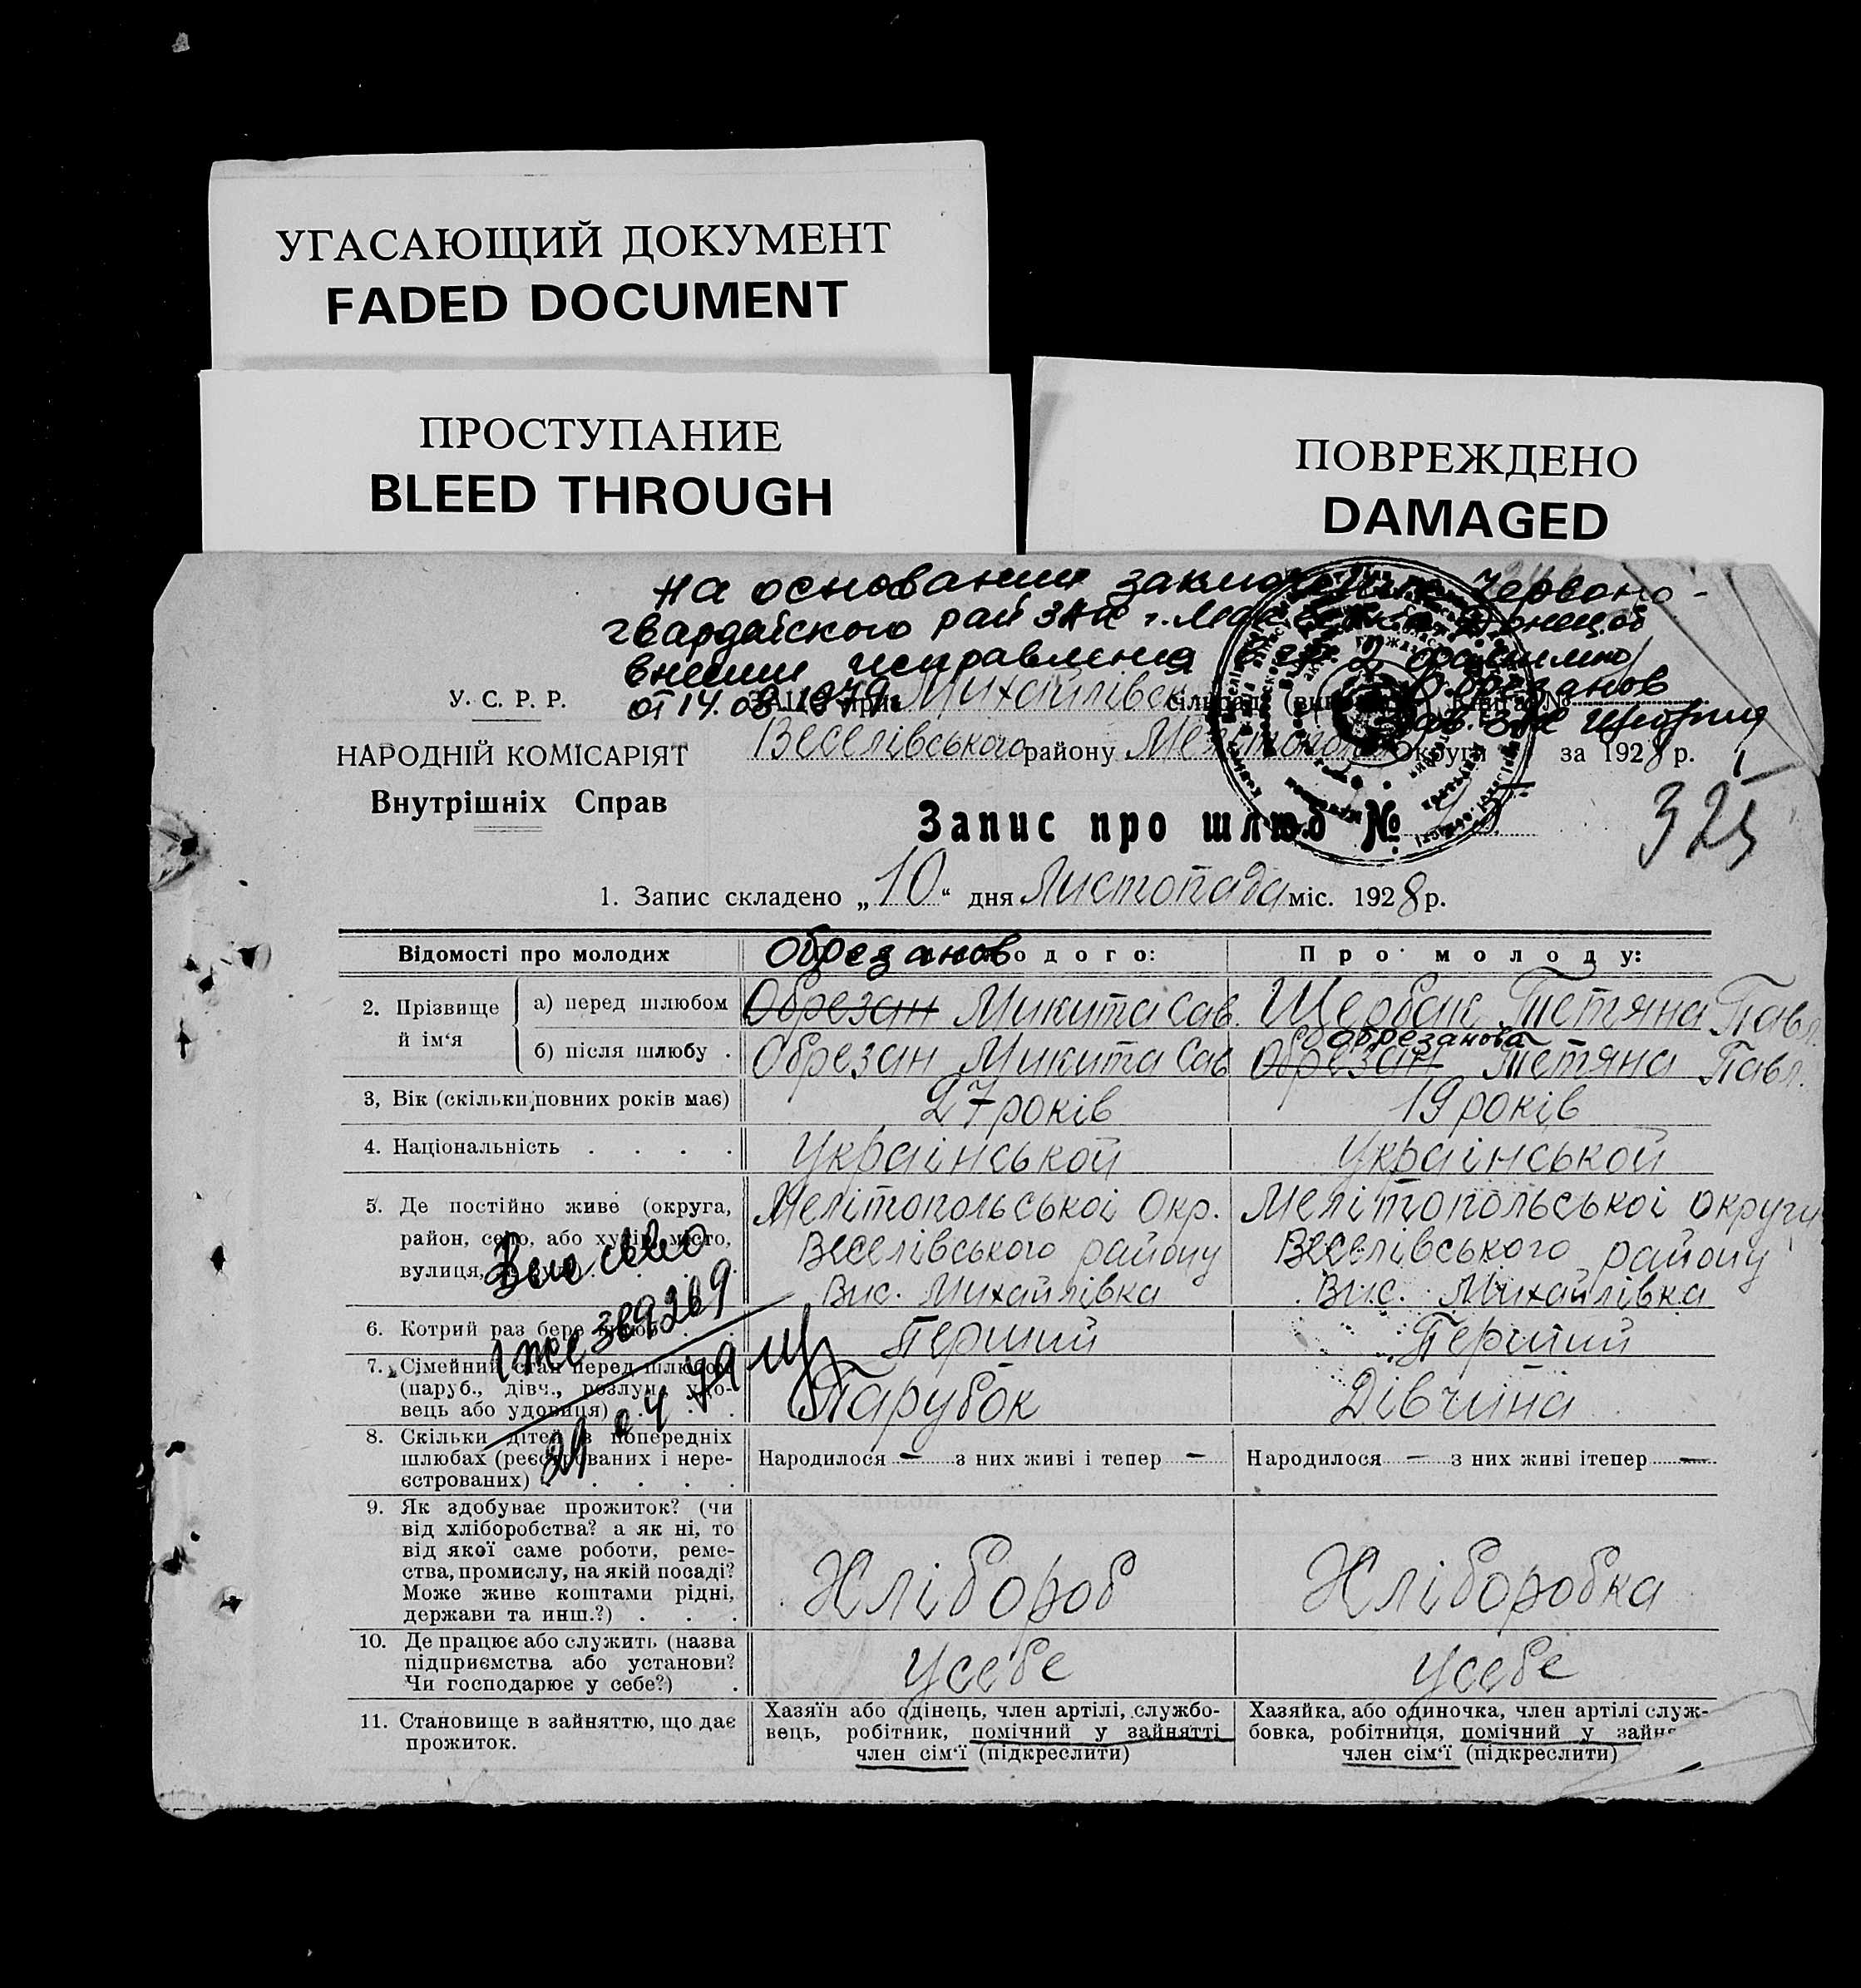 УГАСАЮЩИЙ ДОКУМЕНТ
FADED DOCUMENT
ПРОСТУПАНИЕ
BLEED THROUGH
ПОВРЕЖДЕНО
DAMAGED
На основании заключения Червоно-
гвардейского рай ЗАГС г. Макеевка Донецкой
внесены исправления в гр. 2 фамилию
от 14.03.1979 Обрезанов
У. С. Р. Р.
ЗАЦС'і при Михайлівськ сільраді Книга №
НАРОДНІЙ КОМІСАРІЯТ
Веселівського району Мелітопол Округи за 1928 р.
Внутрішніх Справ
Запис про шлюб № 15
325
1. Запис складено „10“ дня Листопада міс. 1928 р.
Відомості про молодих
Обрезанов
одого:
Про молоду:
2. Прізвище й ім'я
а) перед шлюбом
Обрезан Микита Сав.
Щербак Тетяна Павл.
Обрезанова
б) після шлюбу .
Обрезан Микита Сав
Обрезан Тетяна Павл.
3, Вік (скільки повних років має)
27 років
19 років
4. Національність . . . .
Українськой
Українськой
5. Де постійно живе (округа,
район, село, або хутір, місто,
вулиця,
Мелітопольської Окр.
Веселівського району
Вис. Михайлівка
Мелітопольської округи
Веселівського району
Вис. Михайлівка
6. Котрий раз бере шлюб . .
Перший
Перший
7. Сімейний стан перед шлюбом
(паруб., дівч., розлуч., удо-
вець або удовиця) . . .
Парубок
Дівчина
8. Скільки дітей в попередніх
шлюбах (реєстрованих і нере-
єстрованих) . . . .
Народилося — з них живі і тепер —
Народилося — з них живі ітепер —
9. Як здобуває прожиток? (чи
від хліборобства? а як ні, то
від якої саме роботи, реме-
ства, промислу, на якій посаді?
Може живе коштами рідні,
держави та инш.?) . . .
Хлібороб
Хліборобка
10. Де працює або служить (назва
підприємства або установи?
Чи господарює у себе?) .
Усебе
Усебе
11. Становище в зайняттю, що дає
прожиток.
Хазяїн або одінець, член артілі, службо-
вець, робітник, помічний у зайнятті
член сім'ї (підкреслити)
Хазяйка, або одиночка, член артілі служ-
бовка, робітниця, помічний у зайня
член сім'ї (підкреслити)
369269
29 04 79